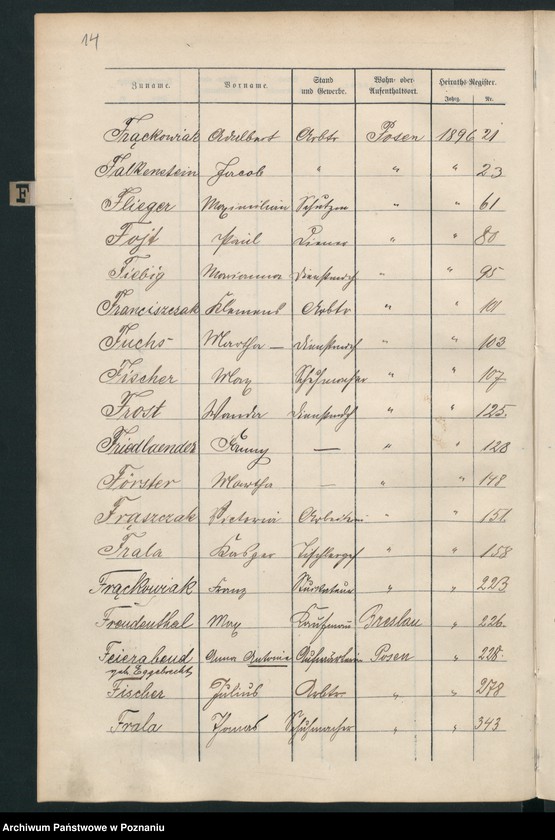 14
Zuname. Vorname. Stand und Gewerbe. Wohn- oder Aufenthaltsort. Heiraths-Register.
Jahrg. Nr.
F
Frąckowiak Adalbert Arbtr Posen 1896 21
Falkenstein Jacob " " " 23
Flieger Maximilian Schutzm " " 61
Fojt Paul Diener " " 80
Fiebig Marianna Dienstmdch " " 95
Franciszcsak Klemens Arbtr " " 101
Fuchs Martha — Dienstmdch " " 103
Fischer Max Schuhmacher " " 107
Frost Wanda Dienstmdch " " 125.
Friedlaender Fanny — " " 128
Förster Martha — " " 148
Frąszczak Victoria Arbeiterin " " 151.
Frala Kasper Tischlerges " " 158
Frąckowiak Franz " " 223
Freudenthal Max Kaufmann Breslau " 226.
Feierabend Anna Antonie Aufwärterin Posen " 228.
geb. Eggebrecht
Fischer Julius Arbtr " " 278
Frala Thomas Schuhmacher " " 343
Archiwum Państwowe w Poznaniu